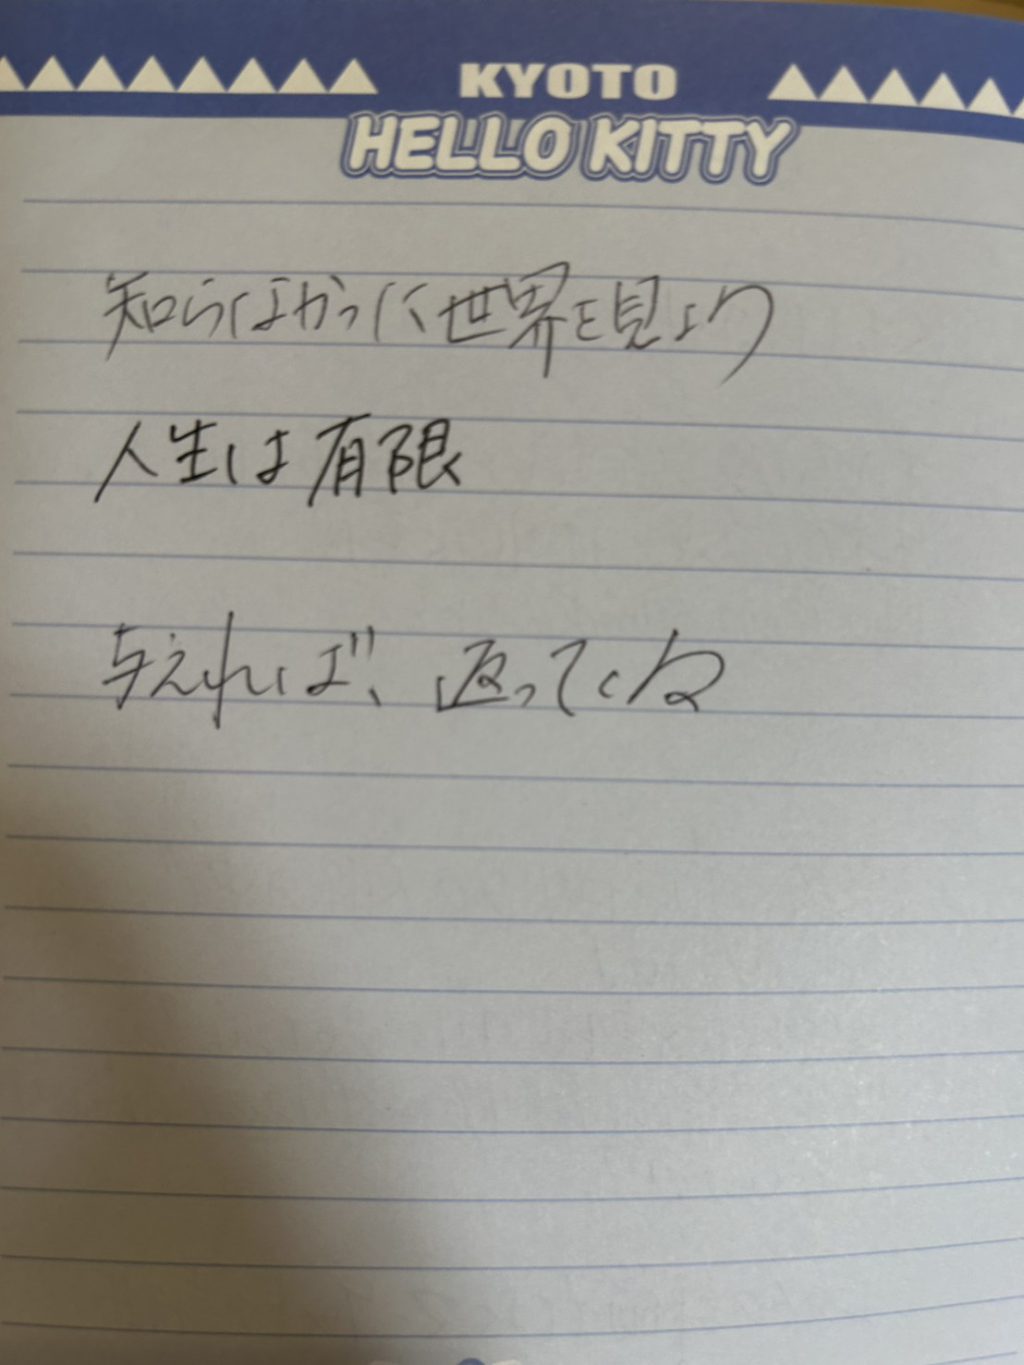 KYOTO
HELLO KITTY
知らなかった世界を見よう
人生は有限
与えれば、返ってくる